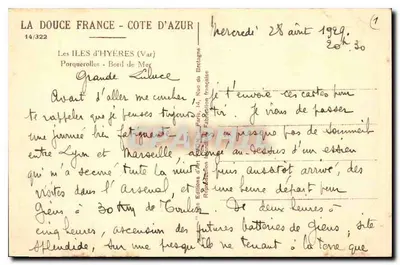 LA DOUCE FRANCE - COTE D'AZUR
14/322
Les ILES d'HYÈRES (Var)
Porquerolles - Bord de Mer
Mercredi 28 août 1929.
20h 30
1
Grande Luluce
Avant d'aller me coucher, je t'envoie ces cartes pour
te rappeler que je pense toujours à toi. Je viens de passer
une journée bien fatigante pas ou presque pas de sommeil
entre Lyon et Marseille, allongé au dessus d'un essieu
qui m'a secoué toute la nuit puis aussitôt arrivé, des
visites dans l'Arsenal et à une heure départ pour
Giens à 30 Km de Toulon. De deux heures à
cinq heures, ascension des futures batteries de Giens; site
splendide, sur une presqu'île ne tenant à la terre que